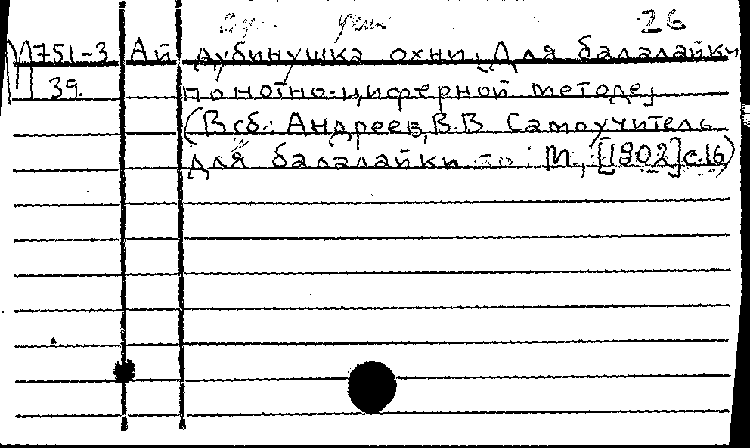 26
М751-3 Ай дубинушка охни. [Для балалайки
39 по нотно-циферной методе]
(В сб.: Андреев, В.В Самоучитель
для балалайки М., [1902] с.16)